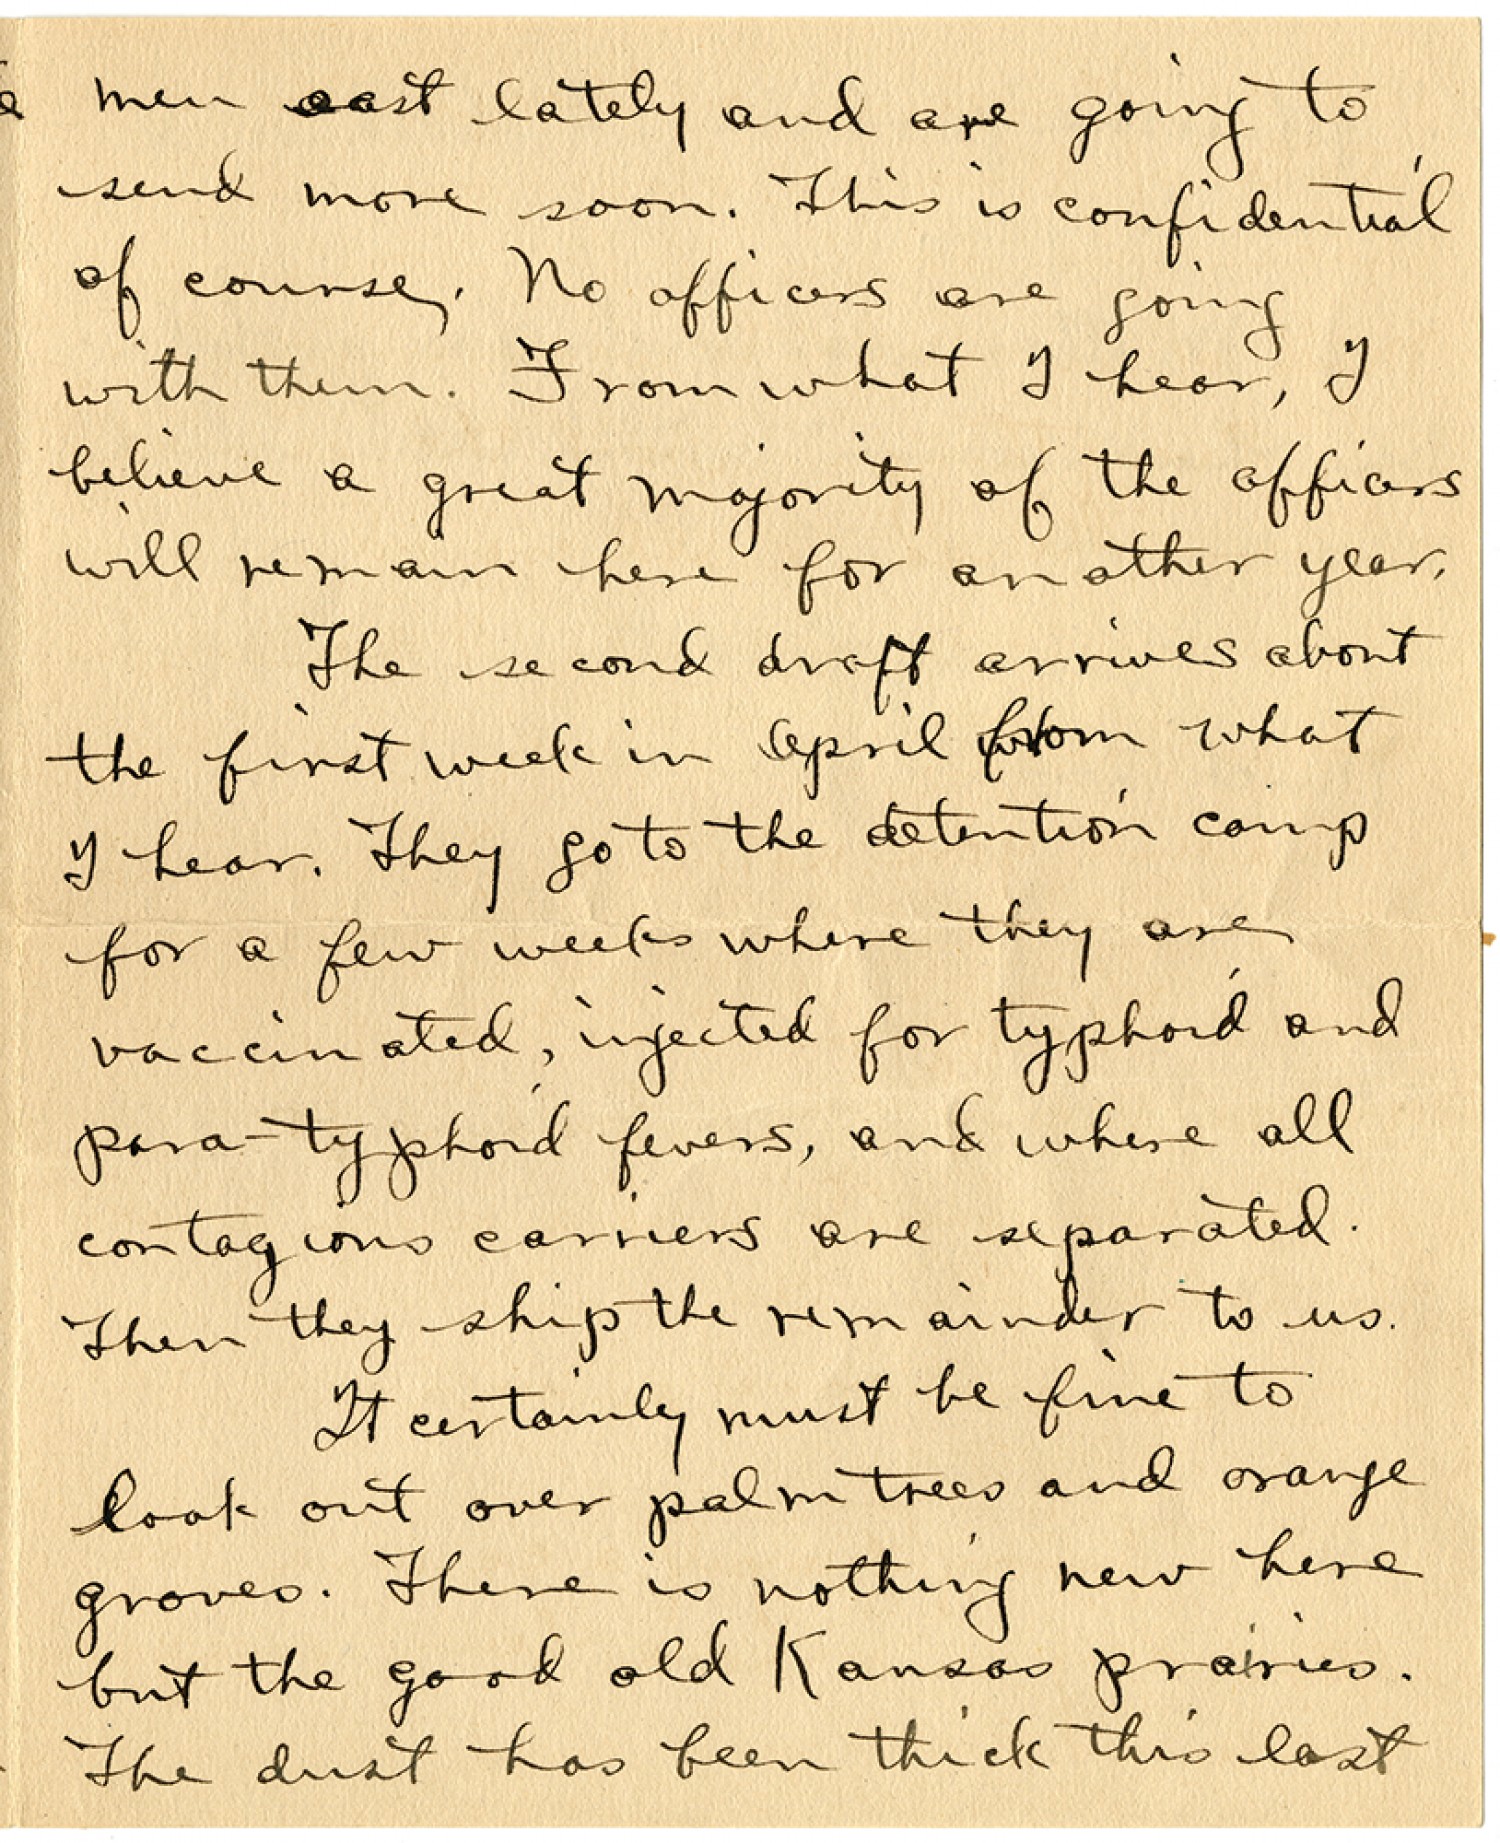 men east lately and are going to
send more soon. This is confidential
of course. No officers are going
with them. From what I hear, I
believe a great majority of the officers
will remain here for another year.
The second draft arrives about
the first week in April from what
I hear. They go to the detention camp
for a few weeks where they are
vaccinated, injected for typhoid and
para-typhoid fevers, and where all
contagious carriers are separated.
Then they ship the remainder to us.
It certainly must be fine to
look out over palm trees and orange
groves. There is nothing new here
but the good old Kansas prairies.
The dust has been thick this last